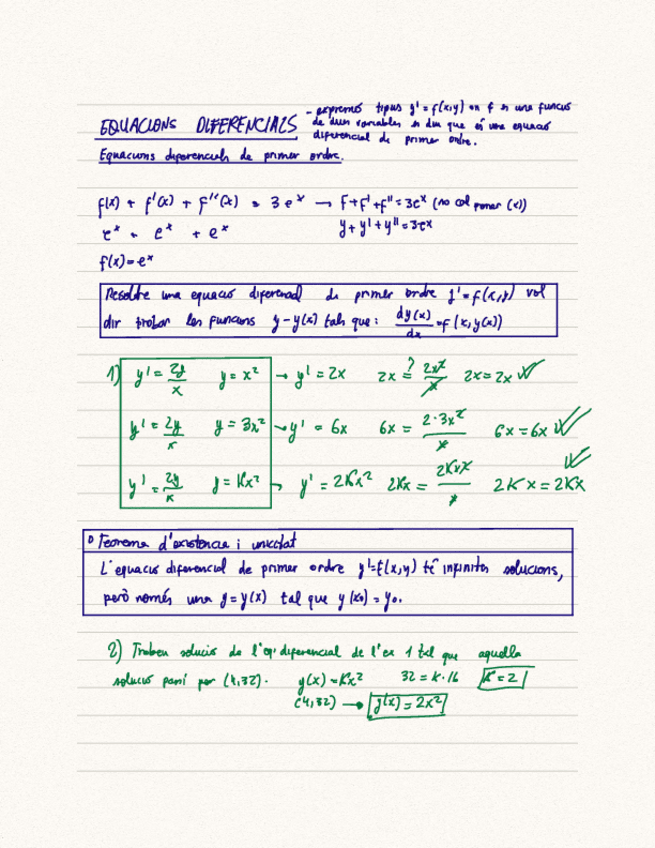 EQUACIONS DIFERENCIALS
- expressió tipus y' = f(x,y) on f és una funció
de dues variables es diu que és una equació
diferencial de primer ordre.
Equacions diferencials de primer ordre.
f(x) + f'(x) + f''(x) = 3e^x → f+f'+f'' = 3e^x (no cal posar (x))
e^x + e^x + e^x
y+y'+y'' = 3e^x
f(x) = e^x
Resoldre una equació diferencial de primer ordre y' = f(x,y) vol
dir trobar les funcions y=y(x) tals que: dy(x)/dx = f(x,y(x))
1) y' = 2y/x y = x² → y' = 2x 2x =? 2x²/x 2x = 2x ✓
y' = 2y/x y = 3x² → y' = 6x 6x = 2·3x²/x 6x = 6x ✓
y' = 2y/x y = Kx² → y' = 2Kx² 2Kx = 2Kx²/x 2Kx = 2Kx ✓
Teorema d'existència i unicitat
L'equació diferencial de primer ordre y'=f(x,y) té infinites solucions,
però només una y=y(x) tal que y(x₀) = y₀.
2) Trobeu solució de l'eq. diferencial de l'ex 1 tal que aquella
solució passi per (4,32). y(x) = Kx² 32 = K·16 K = 2
(4,32) → y(x) = 2x²